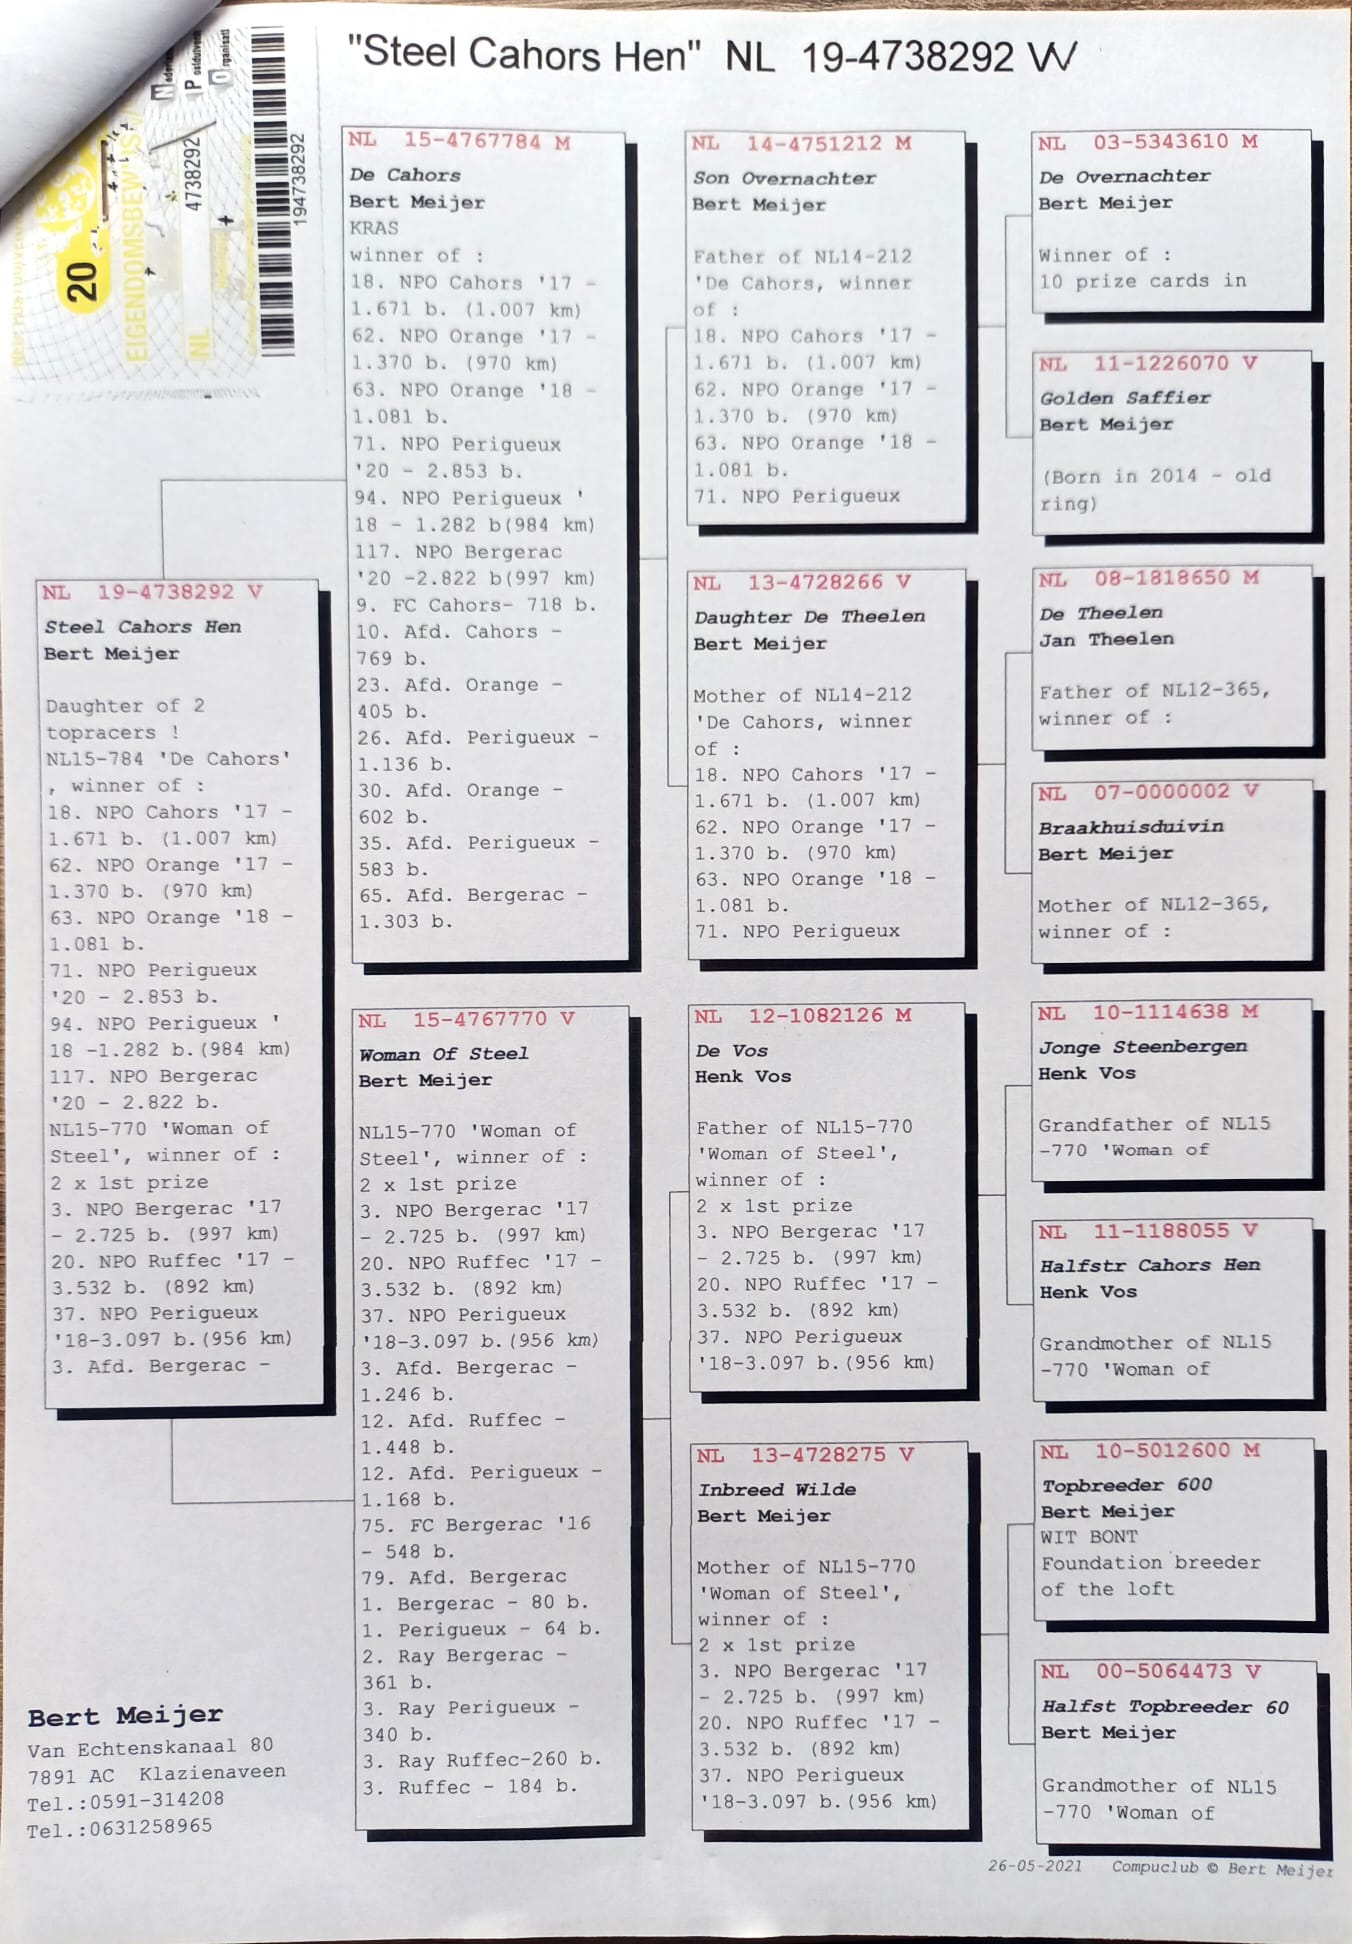 "Steel Cahors Hen" NL 19-4738292 W
20
EIGENDOMSBEWIJS
NL
4738292
194738292
NL 19-4738292 V
Steel Cahors Hen
Bert Meijer
Daughter of 2
topracers !
NL15-784 'De Cahors'
, winner of :
18. NPO Cahors '17 -
1.671 b. (1.007 km)
62. NPO Orange '17 -
1.370 b. (970 km)
63. NPO Orange '18 -
1.081 b.
71. NPO Perigueux
'20 - 2.853 b.
94. NPO Perigueux '
18 -1.282 b.(984 km)
117. NPO Bergerac
'20 - 2.822 b.
NL15-770 'Woman of
Steel', winner of :
2 x 1st prize
3. NPO Bergerac '17
- 2.725 b. (997 km)
20. NPO Ruffec '17 -
3.532 b. (892 km)
37. NPO Perigueux
'18-3.097 b.(956 km)
3. Afd. Bergerac -
NL 15-4767784 M
De Cahors
Bert Meijer
KRAS
winner of :
18. NPO Cahors '17 -
1.671 b. (1.007 km)
62. NPO Orange '17 -
1.370 b. (970 km)
63. NPO Orange '18 -
1.081 b.
71. NPO Perigueux
'20 - 2.853 b.
94. NPO Perigueux '
18 - 1.282 b(984 km)
117. NPO Bergerac
'20 -2.822 b(997 km)
9. FC Cahors- 718 b.
10. Afd. Cahors -
769 b.
23. Afd. Orange -
405 b.
26. Afd. Perigueux -
1.136 b.
30. Afd. Orange -
602 b.
35. Afd. Perigueux -
583 b.
65. Afd. Bergerac -
1.303 b.
NL 15-4767770 V
Woman Of Steel
Bert Meijer
NL15-770 'Woman of
Steel', winner of :
2 x 1st prize
3. NPO Bergerac '17
- 2.725 b. (997 km)
20. NPO Ruffec '17 -
3.532 b. (892 km)
37. NPO Perigueux
'18-3.097 b.(956 km)
3. Afd. Bergerac -
1.246 b.
12. Afd. Ruffec -
1.448 b.
12. Afd. Perigueux -
1.168 b.
75. FC Bergerac '16
- 548 b.
79. Afd. Bergerac
1. Bergerac - 80 b.
1. Perigueux - 64 b.
2. Ray Bergerac -
361 b.
3. Ray Perigueux -
340 b.
3. Ray Ruffec-260 b.
3. Ruffec - 184 b.
NL 14-4751212 M
Son Overnachter
Bert Meijer
Father of NL14-212
'De Cahors, winner
of :
18. NPO Cahors '17 -
1.671 b. (1.007 km)
62. NPO Orange '17 -
1.370 b. (970 km)
63. NPO Orange '18 -
1.081 b.
71. NPO Perigueux
NL 13-4728266 V
Daughter De Theelen
Bert Meijer
Mother of NL14-212
'De Cahors, winner
of :
18. NPO Cahors '17 -
1.671 b. (1.007 km)
62. NPO Orange '17 -
1.370 b. (970 km)
63. NPO Orange '18 -
1.081 b.
71. NPO Perigueux
NL 12-1082126 M
De Vos
Henk Vos
Father of NL15-770
'Woman of Steel',
winner of :
2 x 1st prize
3. NPO Bergerac '17
- 2.725 b. (997 km)
20. NPO Ruffec '17 -
3.532 b. (892 km)
37. NPO Perigueux
'18-3.097 b.(956 km)
NL 13-4728275 V
Inbreed Wilde
Bert Meijer
Mother of NL15-770
'Woman of Steel',
winner of :
2 x 1st prize
3. NPO Bergerac '17
- 2.725 b. (997 km)
20. NPO Ruffec '17 -
3.532 b. (892 km)
37. NPO Perigueux
'18-3.097 b.(956 km)
NL 03-5343610 M
De Overnachter
Bert Meijer
Winner of :
10 prize cards in
NL 11-1226070 V
Golden Saffier
Bert Meijer
(Born in 2014 - old
ring)
NL 08-1818650 M
De Theelen
Jan Theelen
Father of NL12-365,
winner of :
NL 07-0000002 V
Braakhuisduivin
Bert Meijer
Mother of NL12-365,
winner of :
NL 10-1114638 M
Jonge Steenbergen
Henk Vos
Grandfather of NL15
-770 'Woman of
NL 11-1188055 V
Halfstr Cahors Hen
Henk Vos
Grandmother of NL15
-770 'Woman of
NL 10-5012600 M
Topbreeder 600
Bert Meijer
WIT BONT
Foundation breeder
of the loft
NL 00-5064473 V
Halfst Topbreeder 60
Bert Meijer
Grandmother of NL15
-770 'Woman of
Bert Meijer
Van Echtenskanaal 80
7891 AC Klazienaveen
Tel.:0591-314208
Tel.:0631258965
26-05-2021 Compuclub © Bert Meijer